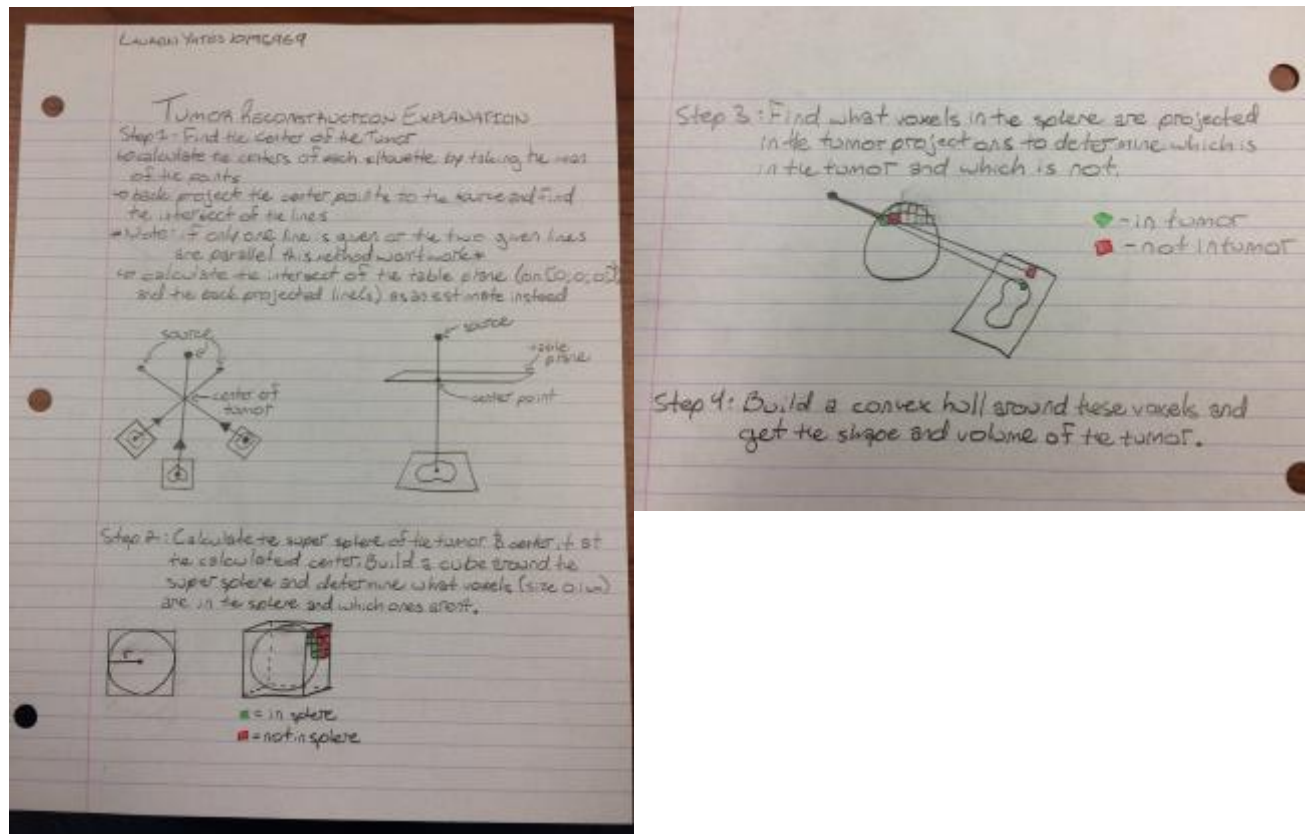 TUMOR RECONSTRUCTION EXPLANATION
Step 1: Find the center of the Tumor
calculate the centers of each silouette by taking the mean
of the points
back project the center points to the source and find
the intersect of the lines
Note: if only one line is given or the two given lines
are parallel this method wont work*
calculate the intersect of the table plane (on [0,0,0])
and the back projected line(s) as an estimate instead
source
center of
tumor
source
table
plane
center point
Step 2: Calculate the super sphere of the tumor & center it at
the calculated center. Build a cube around the
super sphere and determine what voxels (size
are in the sphere and which ones arent.
r
= in sphere
= not in sphere
Step 3: Find what voxels in the sphere are projected
in the tumor projections to determine which is
in the tumor and which is not.
- in tumor
- not in tumor
Step 4: Build a convex hull around these voxels and
get the shape and volume of the tumor.